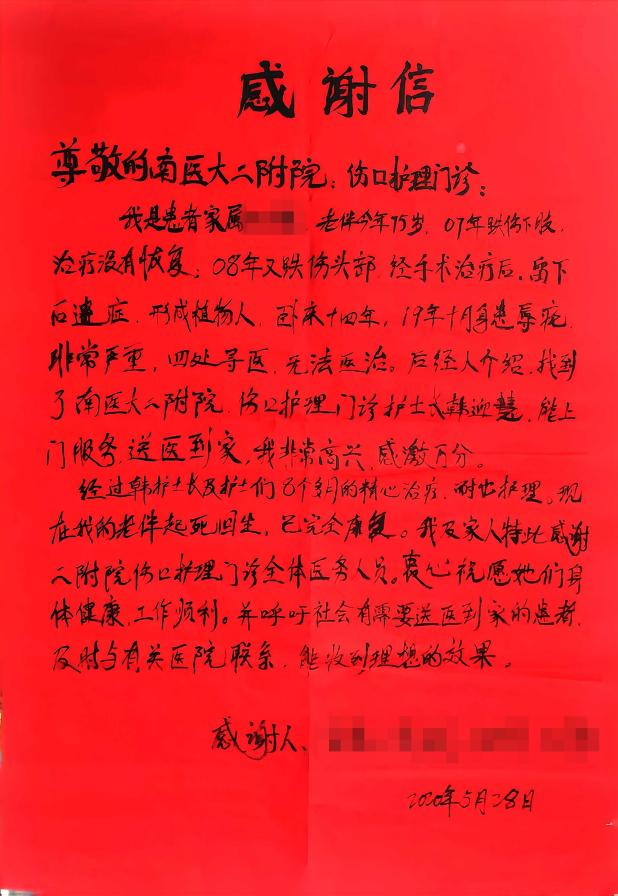 感谢信
尊敬的南医大二附院：伤口护理门诊：
我是患者家属 老伴今年75岁，07年跌伤下肢，
治疗没有恢复；08年又跌伤头部，经手术治疗后，留下
后遗症，形成植物人，卧床十四年，19年十月身患辱疮，
非常严重，四处寻医，无法医治。后经人介绍，找到
了南医大二附院，伤口护理门诊护士长韩迎慧，能上
门服务，送医到家，我非常高兴，感激万分。
经过韩护士长及护士们8个多月的精心治疗，耐心护理。现
在我的老伴起死回生，已完全康复。我及家人特此感谢
二附院伤口护理门诊全体医务人员。衷心祝愿她们身
体健康，工作顺利。并呼吁社会有需要送医到家的患者，
及时与有关医院联系，能收到理想的效果。
感谢人、
2020年5月28日